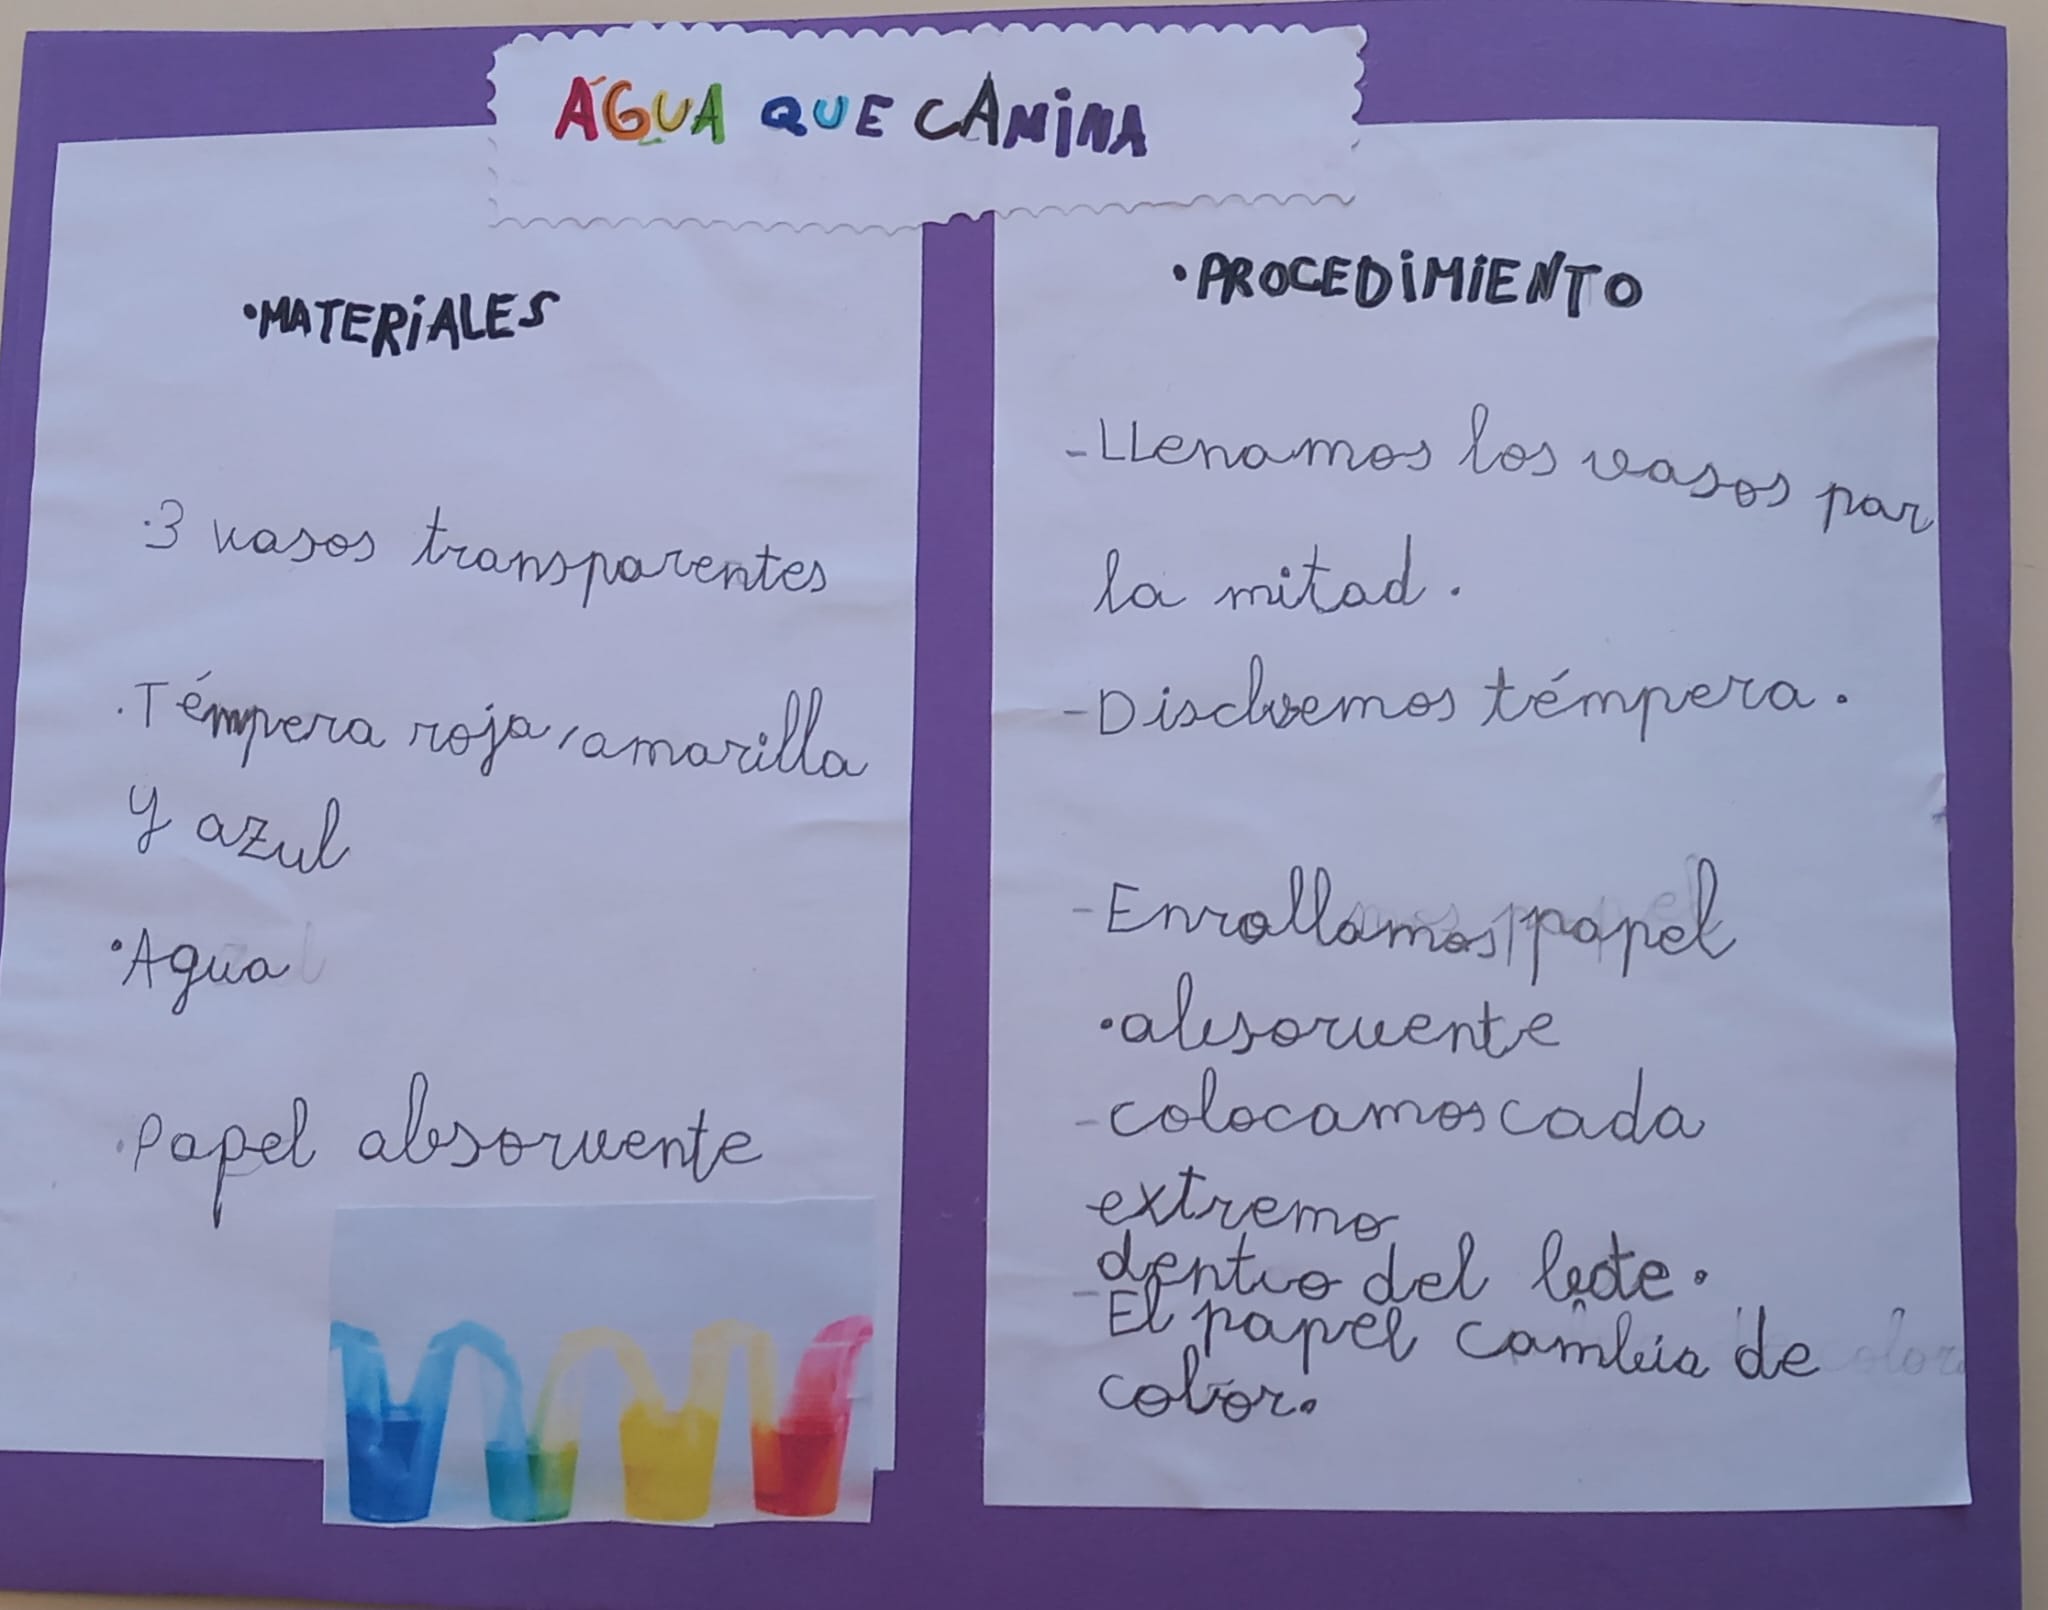 ÁGUA QUE CAMINA
•MATERIALES
·3 vasos transparentes
·Témpera roja, amarilla
y azul
•Agua
·Papel absorvente
•PROCEDIMIENTO
-Llenamos los vasos por
la mitad.
-Disolvemos témpera.
-Enrollamos papel
•absorvente
-colocamos cada
extremo
dentro del bote.
-El papel cambia de
color.